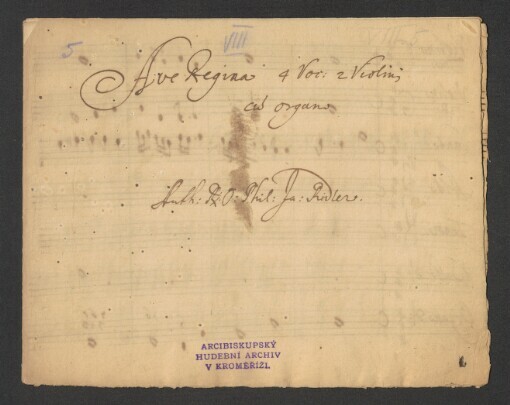 5 VIII
Ave Regina 4 Voc: 2 Violin
cū organo
Auth: Phil: Ja: Ridler.
ARCIBISKUPSKÝ
HUDEBNÍ ARCHIV
V KROMĚŘÍŽI.